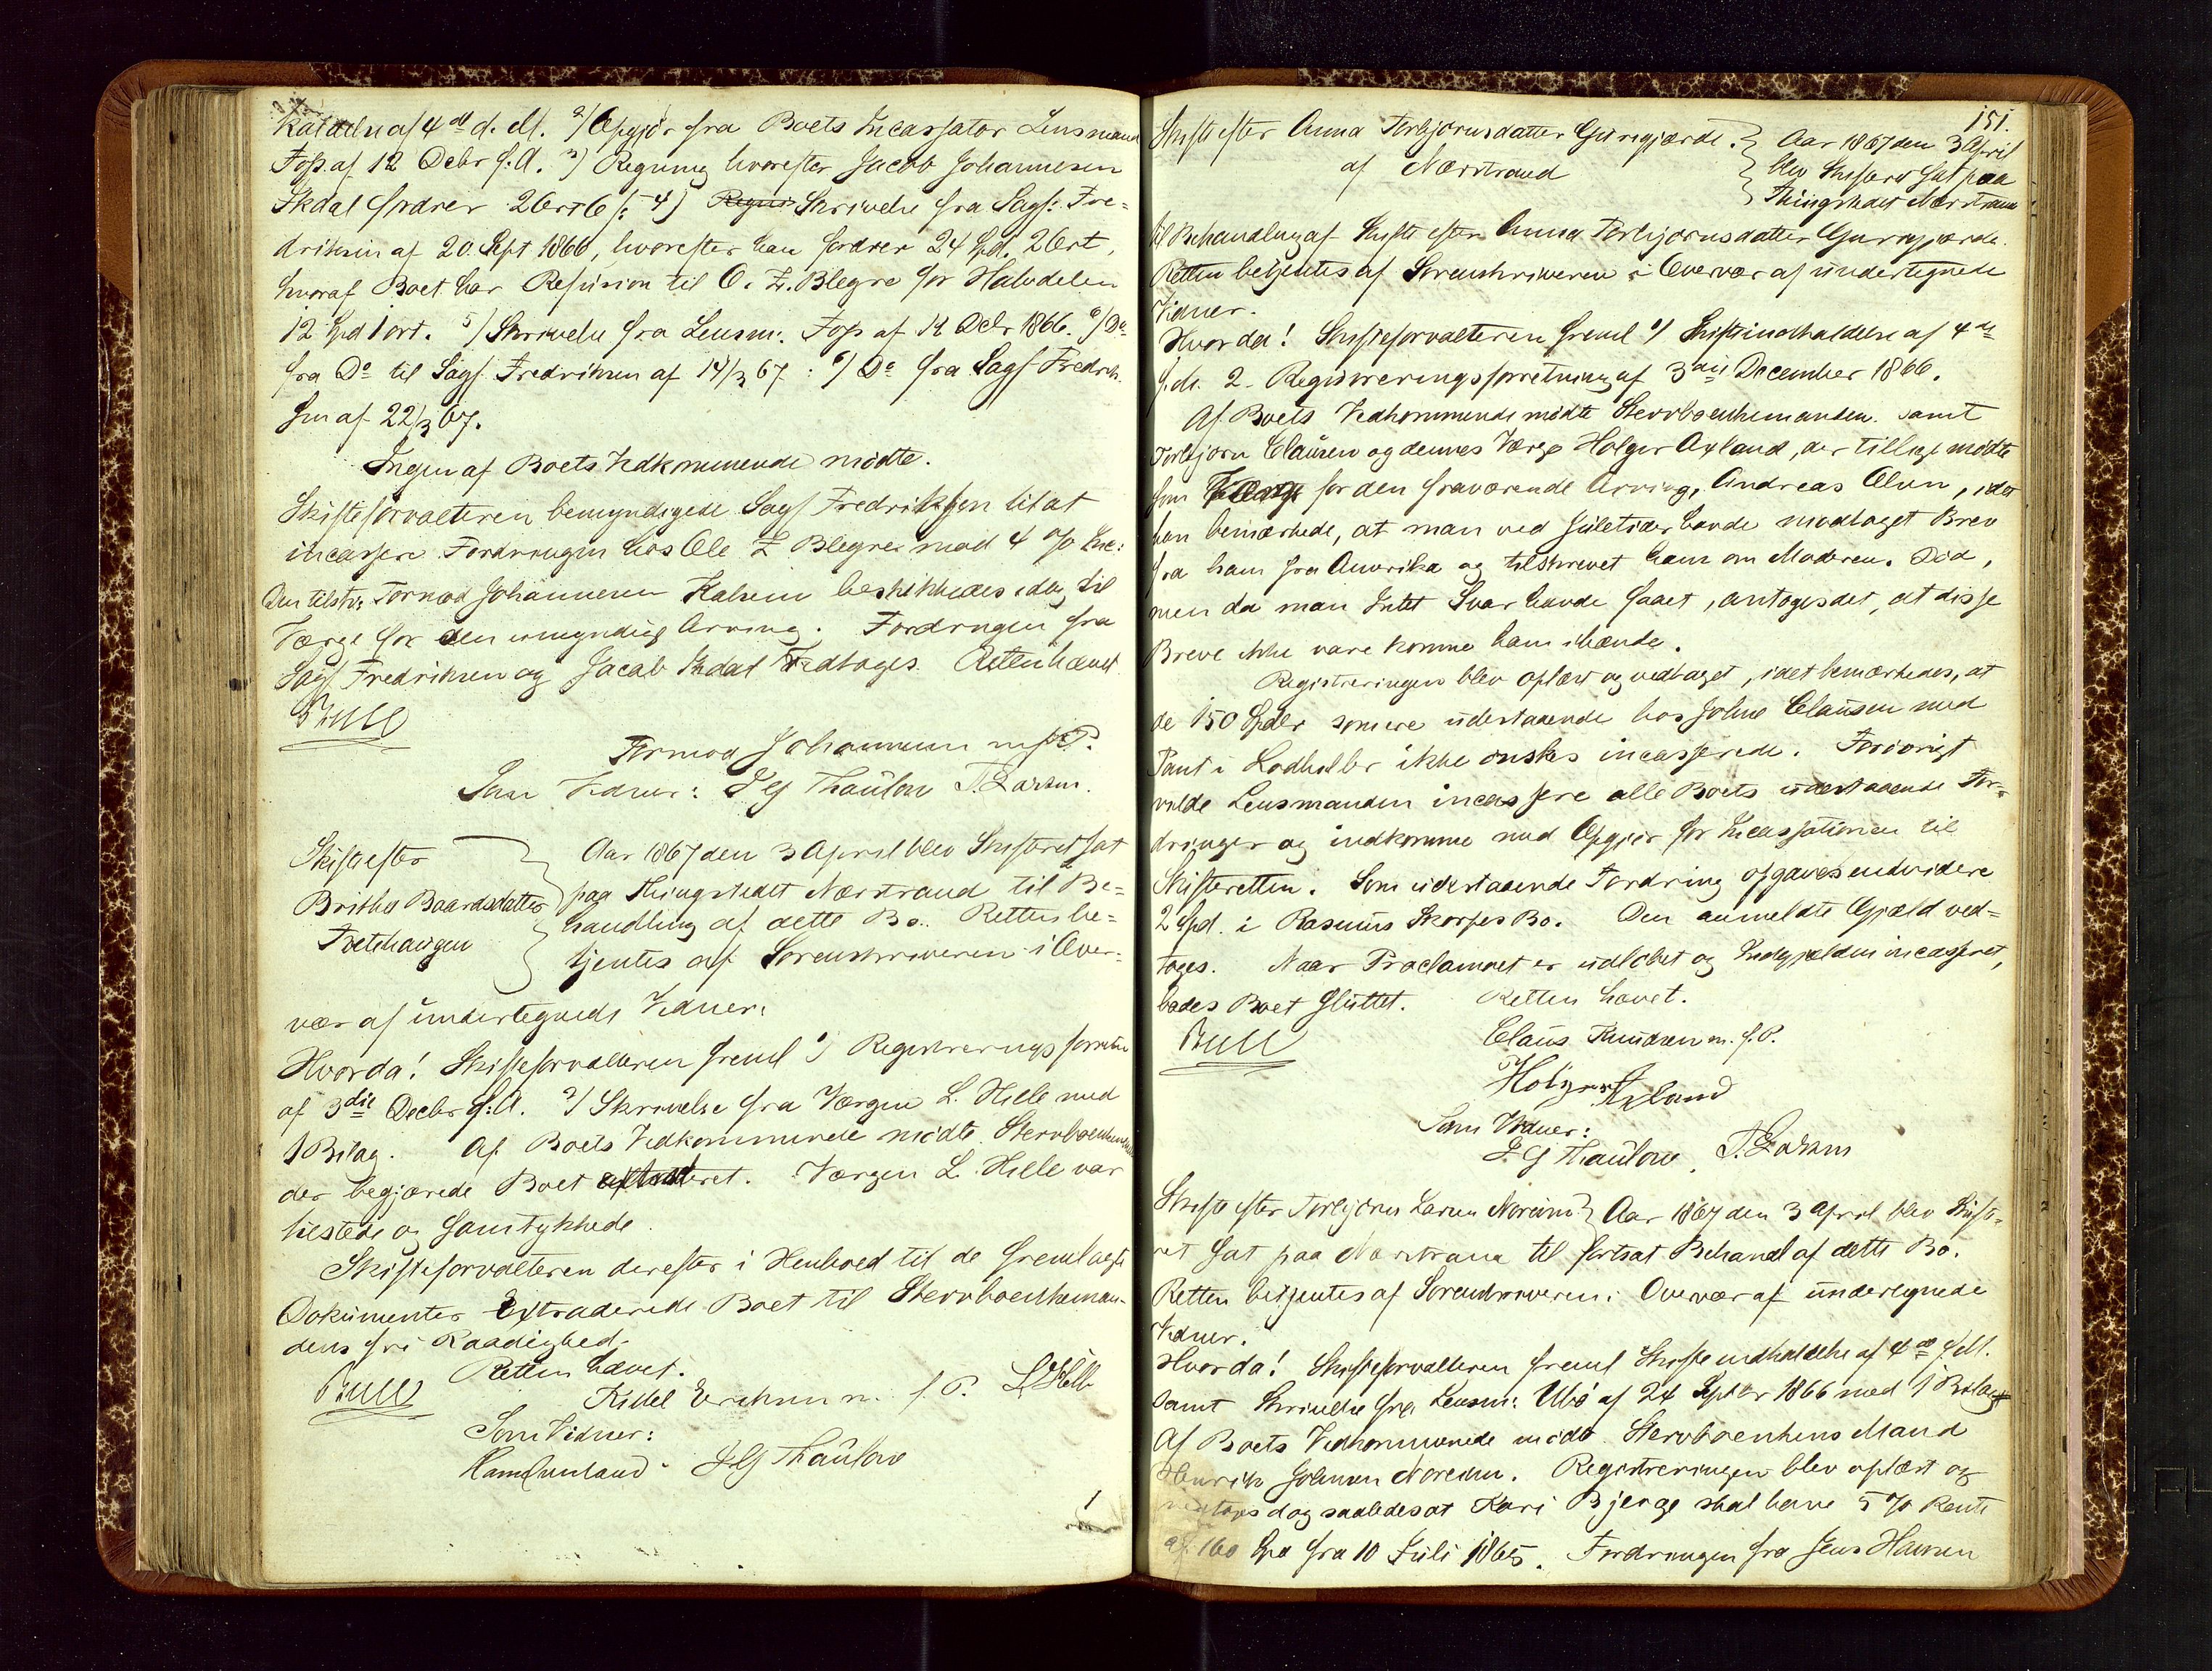 kaldelse af 4de d. M. 2) Opgjør fra Boets Incassator Lensmand
Foss af 12 Decbr f. A. 3) Regning hvorefter Jacob Johannesen
Skdal fordrer 2 Ort 6 s. 4) Skrivelse fra Sagf: Fre-
driksen af 20 Sept 1866, hvorefter han fordrer 24 Spd. 2 Ort,
hvoraf Boet har Refusion til O. Z. Blegre for Halvdelen
12 Spd 1 ort. 5) Skrivelse fra Lensm: Foss af 12 Decbr 1866. 6) Do
fra Do til Sagf Fredriksen af 14/3 67: 6) Do fra Sagf Fredrik-
sen af 22/3 67.
Ingen af Boets Vedkommende mødte.
Skifteforvalteren bemyndigede Sagf Fredriksen til at
incassere Fordringen hos Ole Z Blegre mod 4 % Inc:
Den tilstv: Tormod Johannesen Kalsem beskikkedes idag til
Værge for den umyndige Arving. Fordringen fra
Sagf Fredriksen og Jacob Skdal Vedtoges. Retten hævet
Bull
Tormod Johannesen m. f. P.
Som Vidner: J G Thaulow T. Larsen.
Skifte efter
Britha Baardsdatter
Tveithaugen
Aar 1867 den 3 April blev Skifteret sat
paa Thingstedet Nærstrand til Be-
handling af dette Bo. Retten be-
tjentes af Sorenskriveren i Over-
vær af undertegnede Vidner:
Hvorda! Skifteforvalteren freml 1) Registreringsforretn
af 3die Decbr f: A. 2) Skrivelse fra Værgen L. Helle med
1 Bilag. Af Boets Vedkommende mødte Stervboenkemanden
der begjærede Boet extraderet. Værgen L. Helle var
tilstede og samtykkede.
Skifteforvalteren derefter i Henhold til de fremlagte
Dokumenter Extraderede Boet til Stervboenkeman-
dens fri Raadighed.
Retten hævet.
Bull
Kittel Erichsen m. f. P. L Helle
Som Vidner:
J G Thaulow
151.
Skifte efter Anna Torbjørnsdatter Gjeregjærde
af Nærstrand
Aar 1867 den 3 April
blev Skifteret sat paa
Thingstedet Nærstrand
til Behandling af Skifte efter Anna Torbjørnsdatter Gjeregjærde.
Retten betjentes af Sorenskriveren i Overvær af undertegnede
Vidner.
Hvorda! Skifteforvalteren freml 1) Skifteindkaldelse af 4de
f. M. 2. Registreringsforretning af 3die December 1866.
Af Boets Vedkommende mødte Stervboenkemanden samt
Torbjørn Clausen og dennes Værge Holger Axland, der tillige mødte
som Værge for den fraværende Arving, Andreas Olsen, idet
han bemærkede, at man ved Juletider havde modtaget Brev
fra ham fra Amerika og tilskrevet ham om Moderen. Død,
men da man Intet Svar havde faaet, antoges det, at disse
Breve ikke vare komne ham ihænde.
Registreringen blev oplæst og vedtaget, idet bemærkedes, at
de 150 Spdlr som ere udestaaende hos Johne Clausen med
Pant i Lodhol bør ikke ønskes incasserede. Forøvrigt
vilde Lensmanden incassere alle Boets udestaaende For-
dringer og indkomme med Opgjør for Incassationen til
Skifteretten. Som udestaaende Fordring opgaves endvidere
2 Spd. i Rasmus Skorpes Bo. Den anmeldte Gjæld ved-
toges. Naar Proclamaet er udløbet og Indgjælden incasseret,
bedes Boet sluttet. Retten hævet.
Bull
Claus Knudsen m. f. P.
Holger Axland
Som Vidner:
J G Thaulow, T. Larsen
Skifte efter Torbjørn Larsen Noreim Aar 1867 den 3 April blev Skifte-
ret sat paa Nærstrand til fortsat Behandl af dette Bo.
Retten betjentes af Sorenskriveren i Overvær af undertegnede
Vidner.
Hvorda! Skifteforvalteren freml Skifteindkaldelse af 4de f. M.
samt Skrivelse fra Lensm: Ubø af 24 Septbr 1866 med 1 Bilag
Af Boets Vedkommende mødte Stervboenkens Mand
Henrik Johnsen Noreim. Registreringen blev oplæst og
vedtoges dog saaledes at Kari Bjerge skal have 5 % Rente
af 160 Spd fra 10 Juli 1865. Fordringen fra Jens Hansen